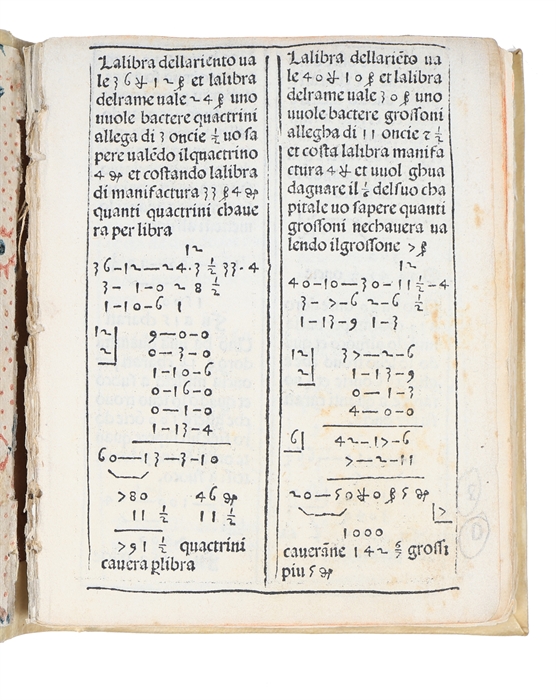 Lalibra dellariento ua
le 36 ₰ 12 ꝭ et lalibra
delrame uale 24 ꝭ uno
uuole bactere quactrini
allega di 3 oncie ½ uo sa
pere ualēdo ilquactrino
4 ₰ et costando lalibra
di manifactura 33 ꝭ 4 ₰
quanti quactrini chaue
ra per libra
12
36-12—24·3 ½ 33·4
3- 1-0 2 8 ½
1-10-6 1
12 9—0-0
2 0—3-0
1-10-6
0-16-0
0-1-0
1-13-4
60—13—3-10
780 46 ₰
11 ½ 11 ½
791 ½ quactrini
cauera ꝑlibra
Lalibra dellariēto ua
le 40 ₰ 10 ꝭ et lalibra
delrame uale 30 ꝭ uno
uuole bactere grossoni
allegha di 11 oncie ⁊ ½
et costa lalibra manifa
ctura 4 ₰ et uuol ghua
dagnare il ⅙ del suo cha
pitale uo sapere quanti
grossoni nechauera ua
lendo ilgrossone 7 ꝭ
12
40-10—30-11½-4
3—7-6 2-6 ½
1-13-9 1-3
12 37—2-6
2 1-13-9
0—1-3
4—0-0
6 42-17-6
7—2-11
20—50 ₰ 0 ꝭ 5 ₰
7
1000
cauerāne 142 6/7 grossi
piu 5 ₰